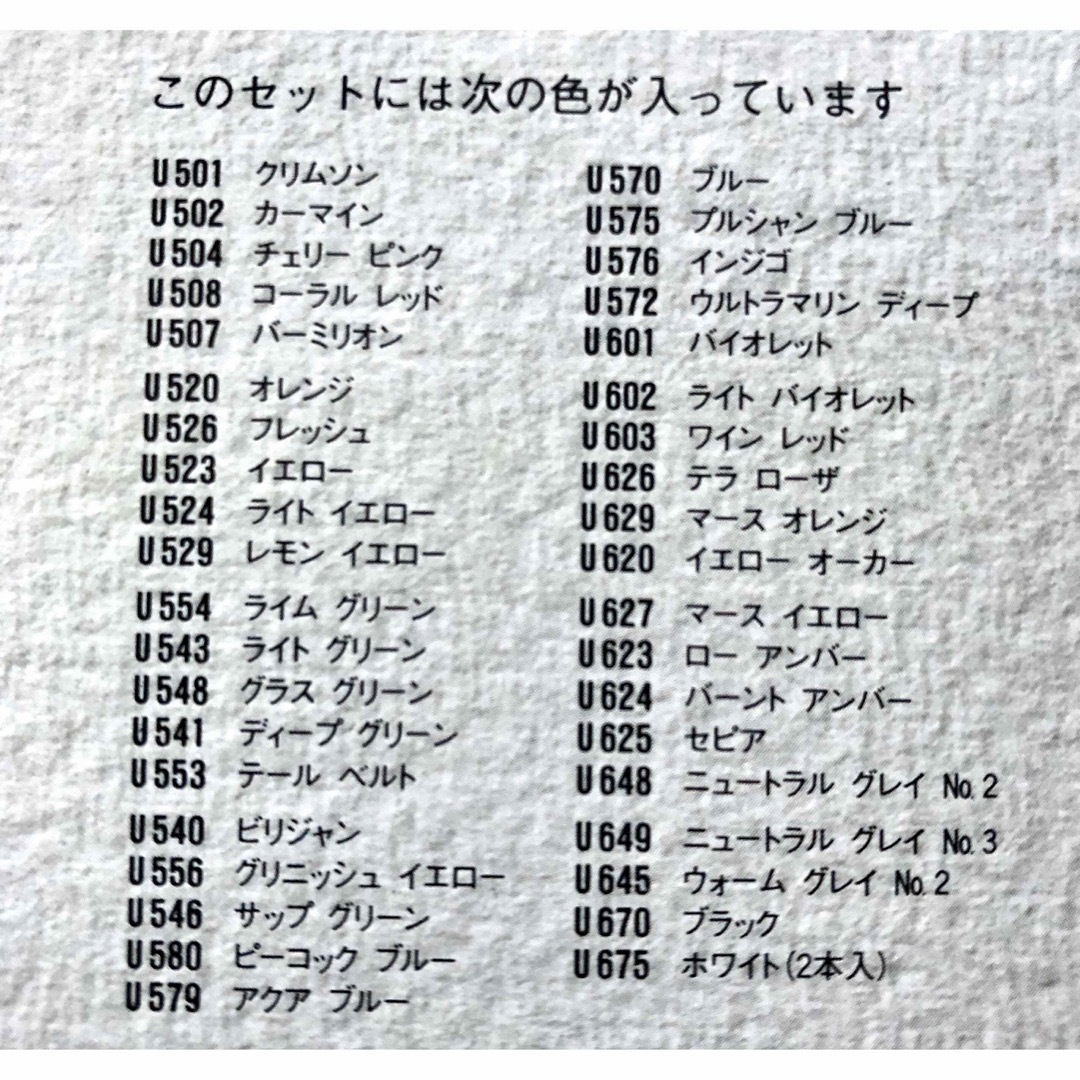 このセットには次の色が入っています
U501 クリムソン
U502 カーマイン
U504 チェリー ピンク
U508 コーラル レッド
U507 バーミリオン
U520 オレンジ
U526 フレッシュ
U523 イエロー
U524 ライト イエロー
U529 レモン イエロー
U554 ライム グリーン
U543 ライト グリーン
U548 グラス グリーン
U541 ディープ グリーン
U553 テール ベルト
U540 ビリジャン
U556 グリニッシュ イエロー
U546 サップ グリーン
U580 ピーコック ブルー
U579 アクア ブルー
U570 ブルー
U575 プルシャン ブルー
U576 インジゴ
U572 ウルトラマリン ディープ
U601 バイオレット
U602 ライト バイオレット
U603 ワイン レッド
U626 テラ ローザ
U629 マース オレンジ
U620 イエロー オーカー
U627 マース イエロー
U623 ロー アンバー
U624 バーント アンバー
U625 セピア
U648 ニュートラル グレイ No.2
U649 ニュートラル グレイ No.3
U645 ウォーム グレイ No.2
U670 ブラック
U675 ホワイト(2本入)